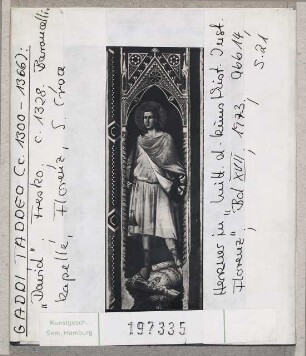 GADDI, TADDEO (c. 1300 - 1366):
"David". Fresko, c. 1328. Baroncelli-
kapelle, Florenz, S. Croce
Herzner in "Mitt. d. kunsthist. Inst.
Florenz", Bd XVII, 1973, Abb 14,
S. 21
Kunstgesch.
Sem. Hamburg
197335